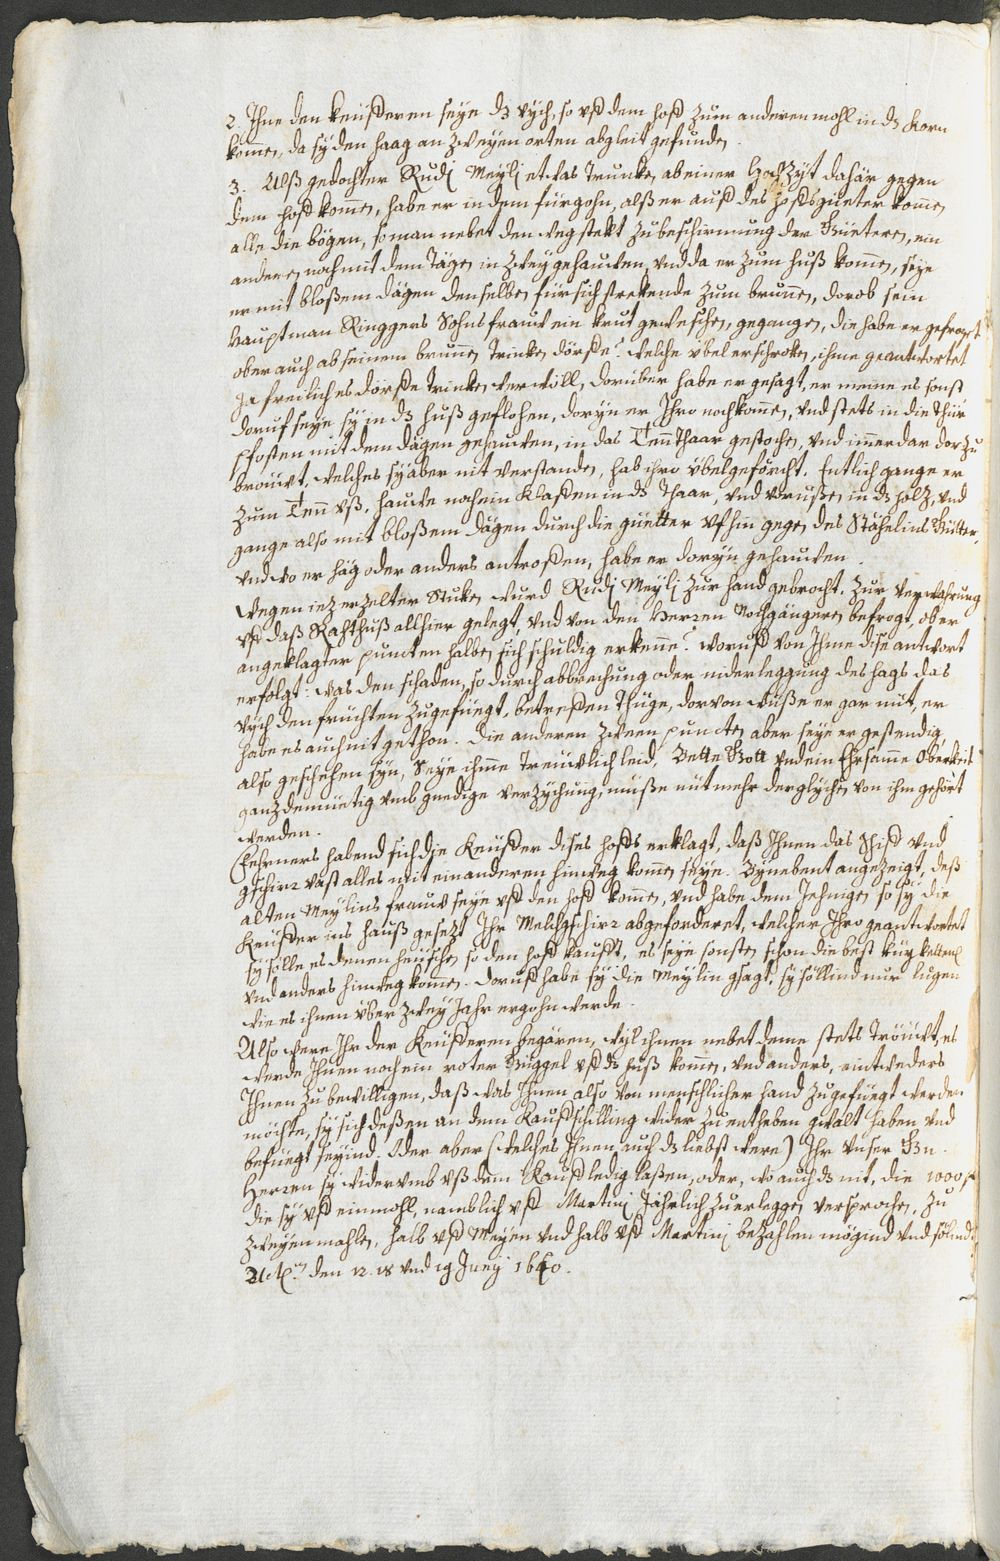 2. Ihne den keüfferen seye dz vych, so vß dem hoff zum anderen mohl in dz korn
komen, da sy den haag an zweyen orten abgleit gefunden.
3. Alß gedochter Rudi Meyli etwas trunken ab einer Hochzyt dahär gegen
dem hoff komen, habe er in dem fürgohn, alß er auff des hoffs güeter komen
alle die bögen, so man nebet den weg stekt zu beschirmung der Güeteren, ein
anderen noch mit dem Tägen in zwey gehauwen, vnd da er zum huß komen, seye
er mit bloßem dägen denselben für sich strekende zum brunnen, dorob sein
Hauptman Ringgers Sohns frauw ein krut gewäschen, gegangen, die habe er gefroget
ob er auch ab seinem brunnen trinken dörffe? welche übel erschroken, ihme geantwortet
Ja freilich es dörffe trinken wer wöll, dorüber habe er gesagt, er meine es sonst
doruf seye sy in dz huß geflohen, doryn er Ihro nochkomen, vnd stets in die Thür
pfosten mit dem dägen gehauwen, in das Tennthaar gestochen, vnd immerdar dorzu
tröuwt, welches sy aber nit verstanden, hab ihro übel geförcht. Entlich gange er
zum Tenn vß, hauwe noch ein Klaffen in dz Thaar, vnd vorußen in dz holz, vnd
gange also mit bloßem dägen durch die güetter vfhin gegen des Stähelins Gütter,
vnd wo er häg oder anders antroffen, habe er doryn gehauwen.
Wegen iez erzelter Stuken wurd Rudi Meyli zur hand gebrocht, zur verwahrung
vff daß Rahthuß allhier gelegt, vnd von den Herren Nochgängeren befrogt, ob er
angeklagter puncten halben sich schuldig erkenne? woruff von Ihme dise antwort
erfolgt: was den schaden, so durch abbrechung oder niderleggung des hags das
vych den früchten zugefüegt, betreffen thüge, dorvon wüße er gar nüt, er
habe es auch nit gethon. Die anderen zween puncten aber seye er gestendig
also geschehen syn, Seye ihme treuwlich leid, Bette Gott vnd ein Ehrsamme Oberkeit
ganz demüetig vmb gnedige verzychung, müße nüt mehr derglychen von ihm gehört
werden.
Fehrners habend sich die Keüffer dises hoffs erklagt, daß Ihnen das Schiff vnd
gschirr vast alles mit ein anderen hinweg komen seye. Bynebent angezeigt, deß
alten Meylins frauw seye vff den hoff komen, vnd habe dem Jehnigen so sy die
Keüffer ins hauß gesetzt Ihr Melchgschirr abgeforderet, welcher Ihro geantwortet
sy sölle es denen heüschen so den hoff kaufft, es seye sonsten schon die best küy ketten
vnd anders hinweg komen. Doruff habe sy die Meylin gsagt, sy söllind nur lugen
wie es ihnen über zwey Jahr ergohn werde.
Also were Ihr der Keüfferen begären, wyl ihnen nebet deme stets tröüwt, es
werde Ihnen noch ein roter Güggel vff dz huß komen, vnd anders, eintweders
Ihnen zu bewilligen, daß was Ihnen also von menschlicher hand zugefüegt werden
möchte, sy sich deßen an dem Kauffschilling wider zu entheben gwalt haben vnd
befüegt seyind. Oder aber (welches Ihnen auch dz liebst were) Ihr vnser Gn.
Herren sy widervmb vß dem Kauff ledig laßen, oder, wo auch dz nit, die 1000 fl
die sy vff einmohl, namblich vff Martini Jährlich zuerleggen versprochen, zu
zweyen mahlen, halb vff Meyen vnd halb vff Martini bezahlen mögind vnd söllind
Act. den 12. 18 vnd 19 Juny 1660.